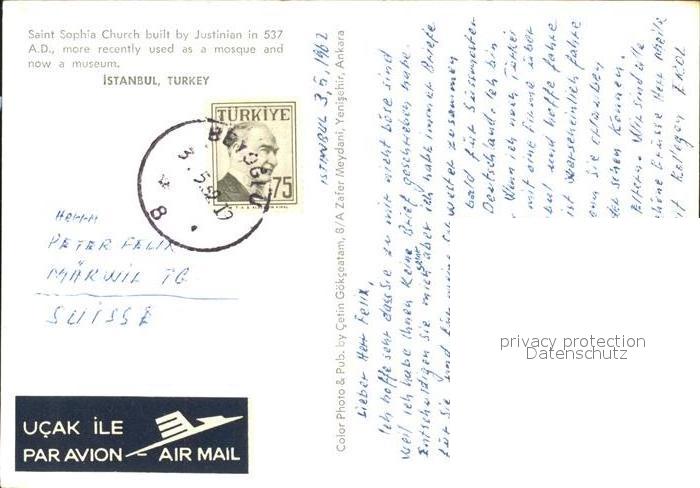 Saint Sophia Church built by Justinian in 537
A.D., more recently used as a mosque and
now a museum.
İSTANBUL, TURKEY
TÜRKİYE
75
BEYOĞLU
Herrn
PETER FELIX
MÄRWIL TG
SUISSE
UÇAK İLE
PAR AVION - AIR MAIL
Color Photo & Pub. by Çetin Gökçeatam, 8/A Zafer Meydani, Yenişehir, Ankara
ISTANBUL 3,5,1962
Lieber Herr Felix,
Ich hoffe sehr dass Sie zu mir nicht böse sind
weil ich habe Ihnen Keine Brief geschrieben habe.
Entschuldigen Sie mich aber ich habe immer Briefe
für Sie und für meine
weiter zusammen
bald für
Deutschland. Ich bin
Wenn ich nach Türkei
mit eine Firma über
und hoffe fahre
ist warscheinlich fahre
Sie
schen Können.
Eltern. Wir sind alle
schöne Grüsse Herr
Kollegen EROL
privacy protection
Datenschutz